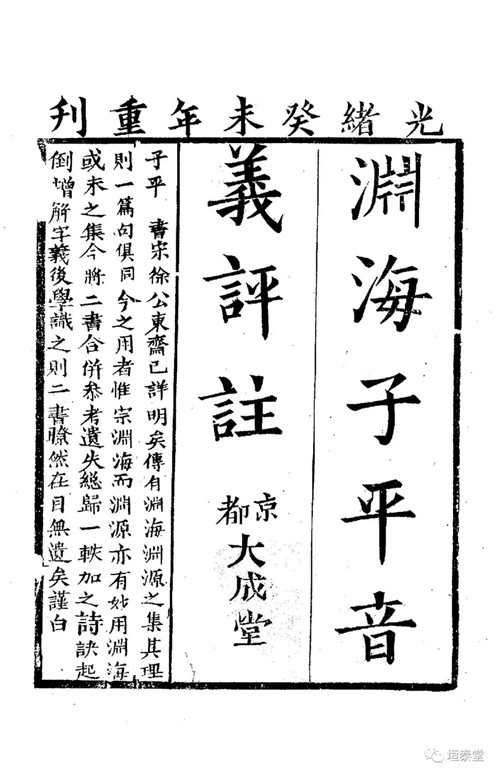 光緒癸未年重刊
淵海子平音
義評註
京都
大成堂
子平 書宋徐公東齋已詳明矣傳有淵海淵源之集其理
則一篇句俱同今之用者惟宗淵海而淵源亦有妙用淵海
或未之集今將二書合併叅考遺失總歸一帙加之詩訣起
倒增解字義後學識之則二書瞭然在目無遺矣謹白
垣泰堂